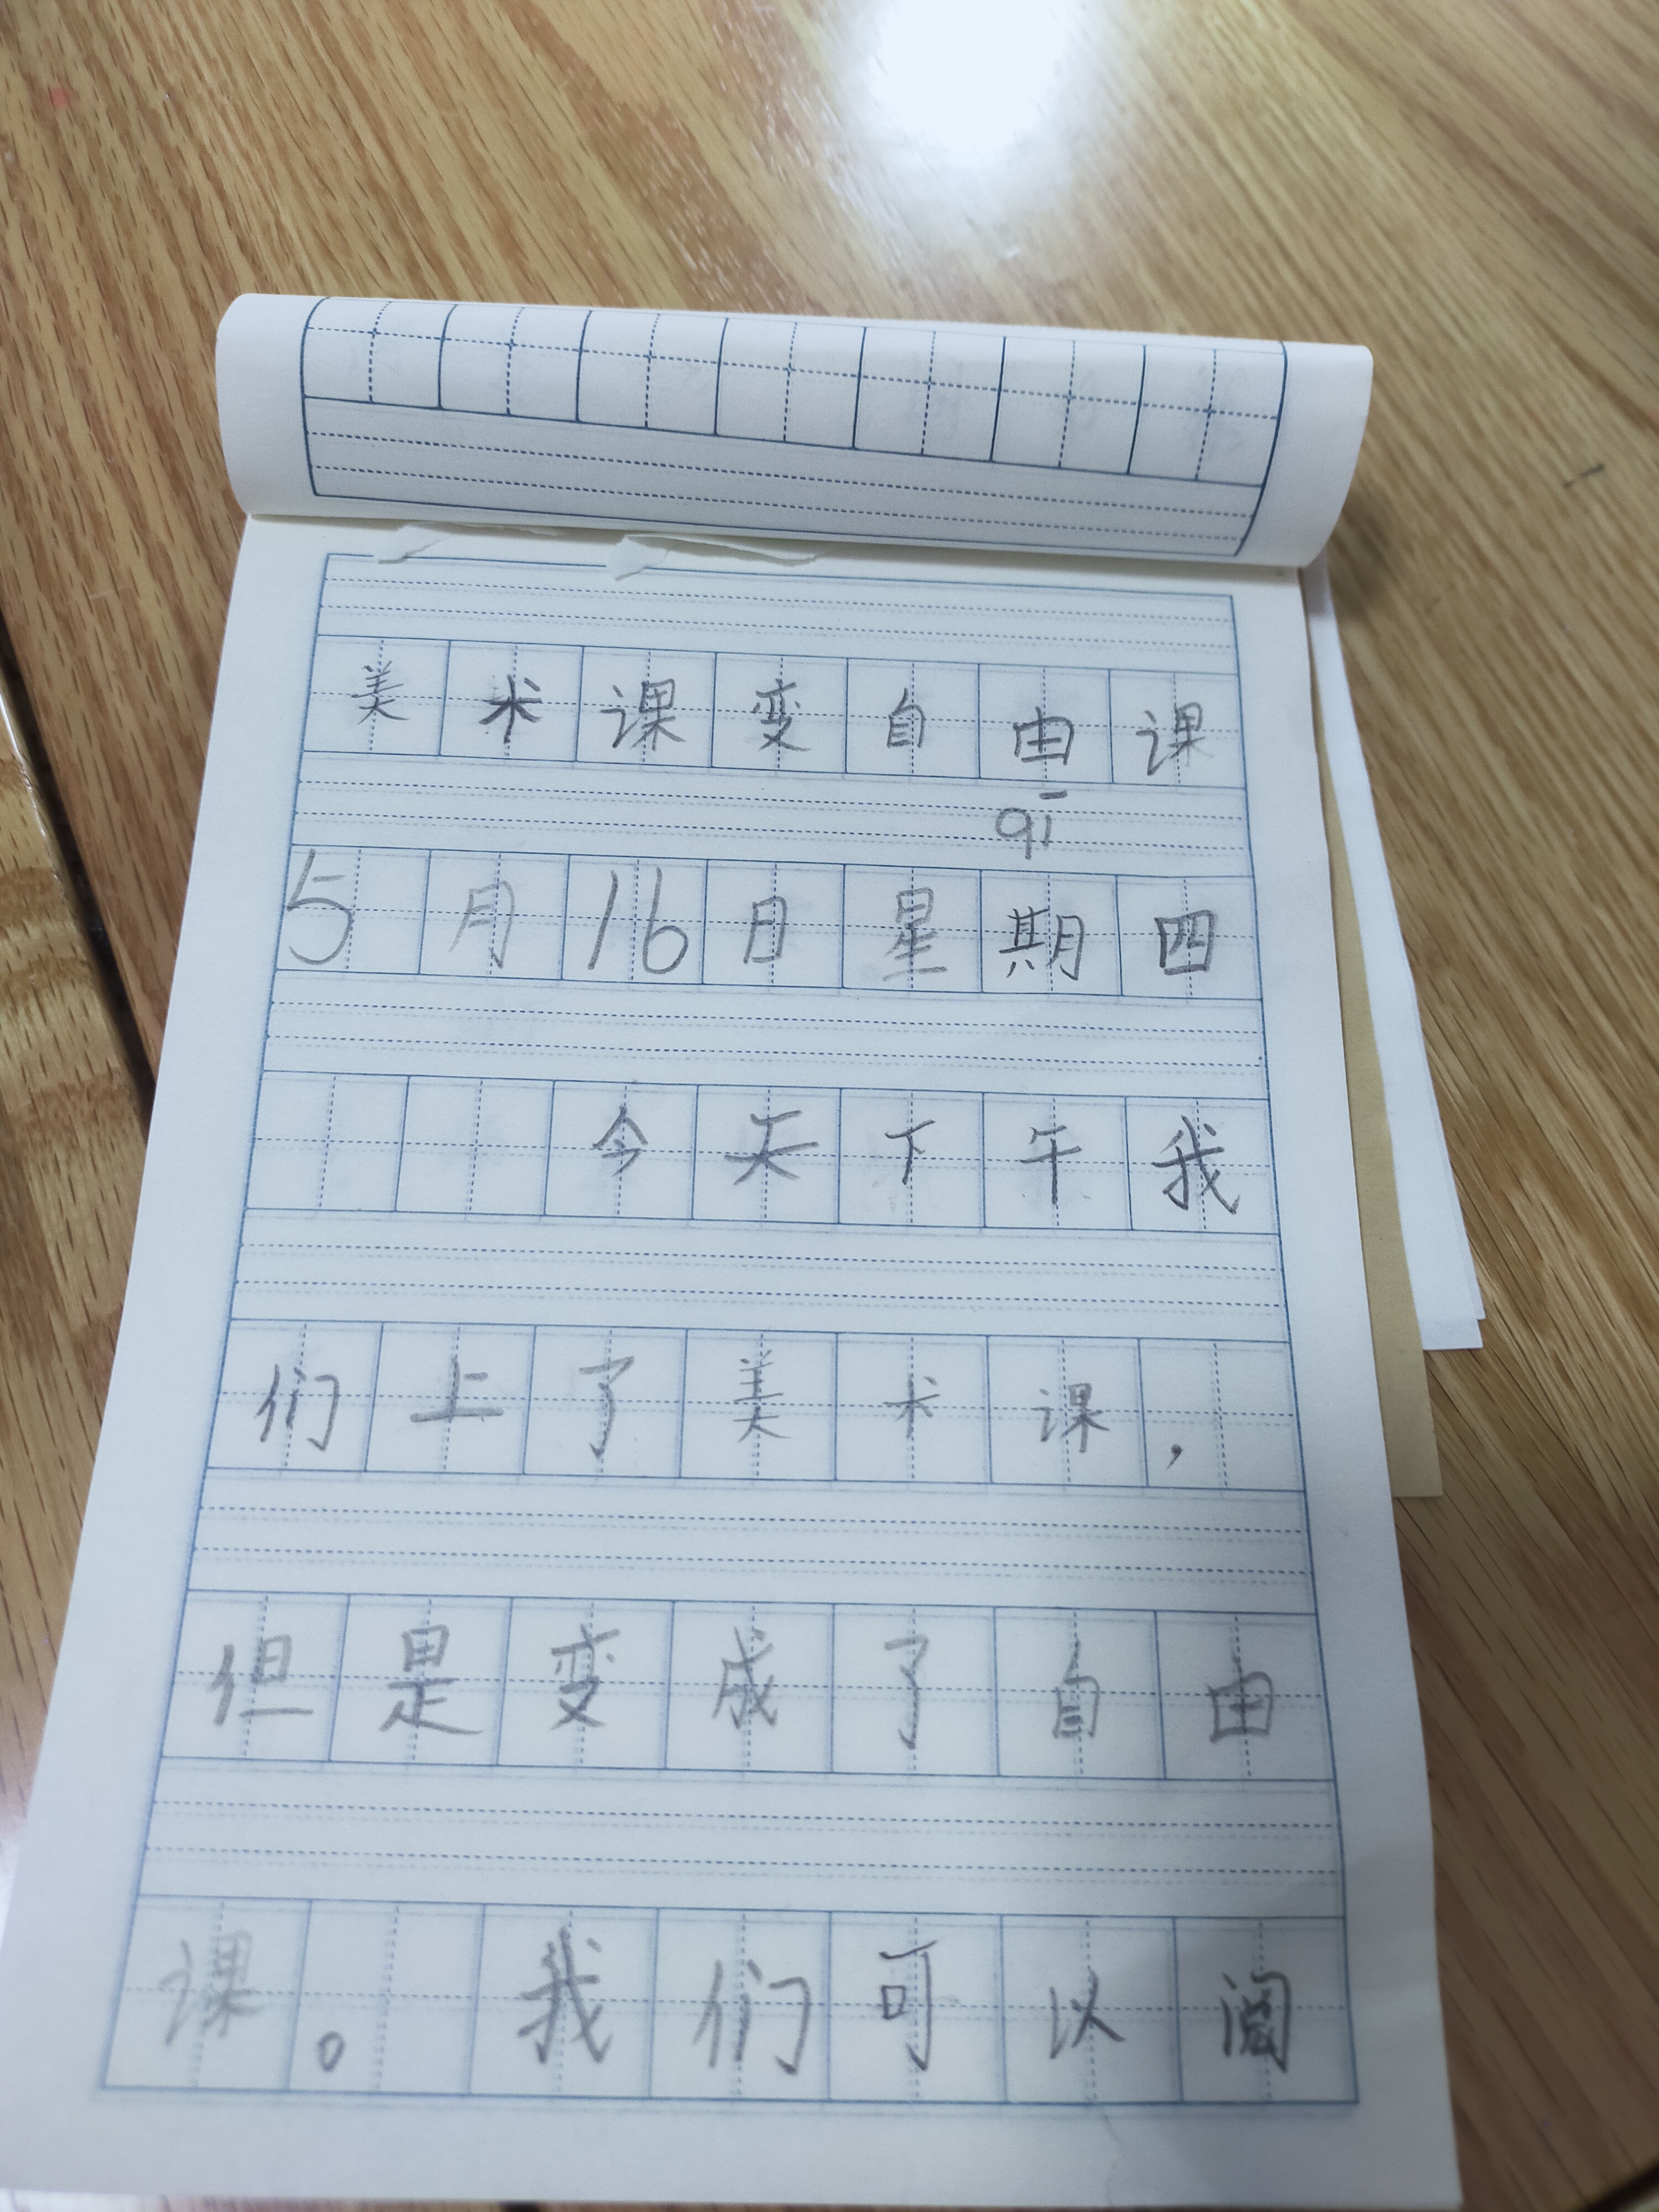 美术课变自由课
qī
5月16日星期四
今天下午我
们上了美术课，
但是变成了自由
课。我们可以阅